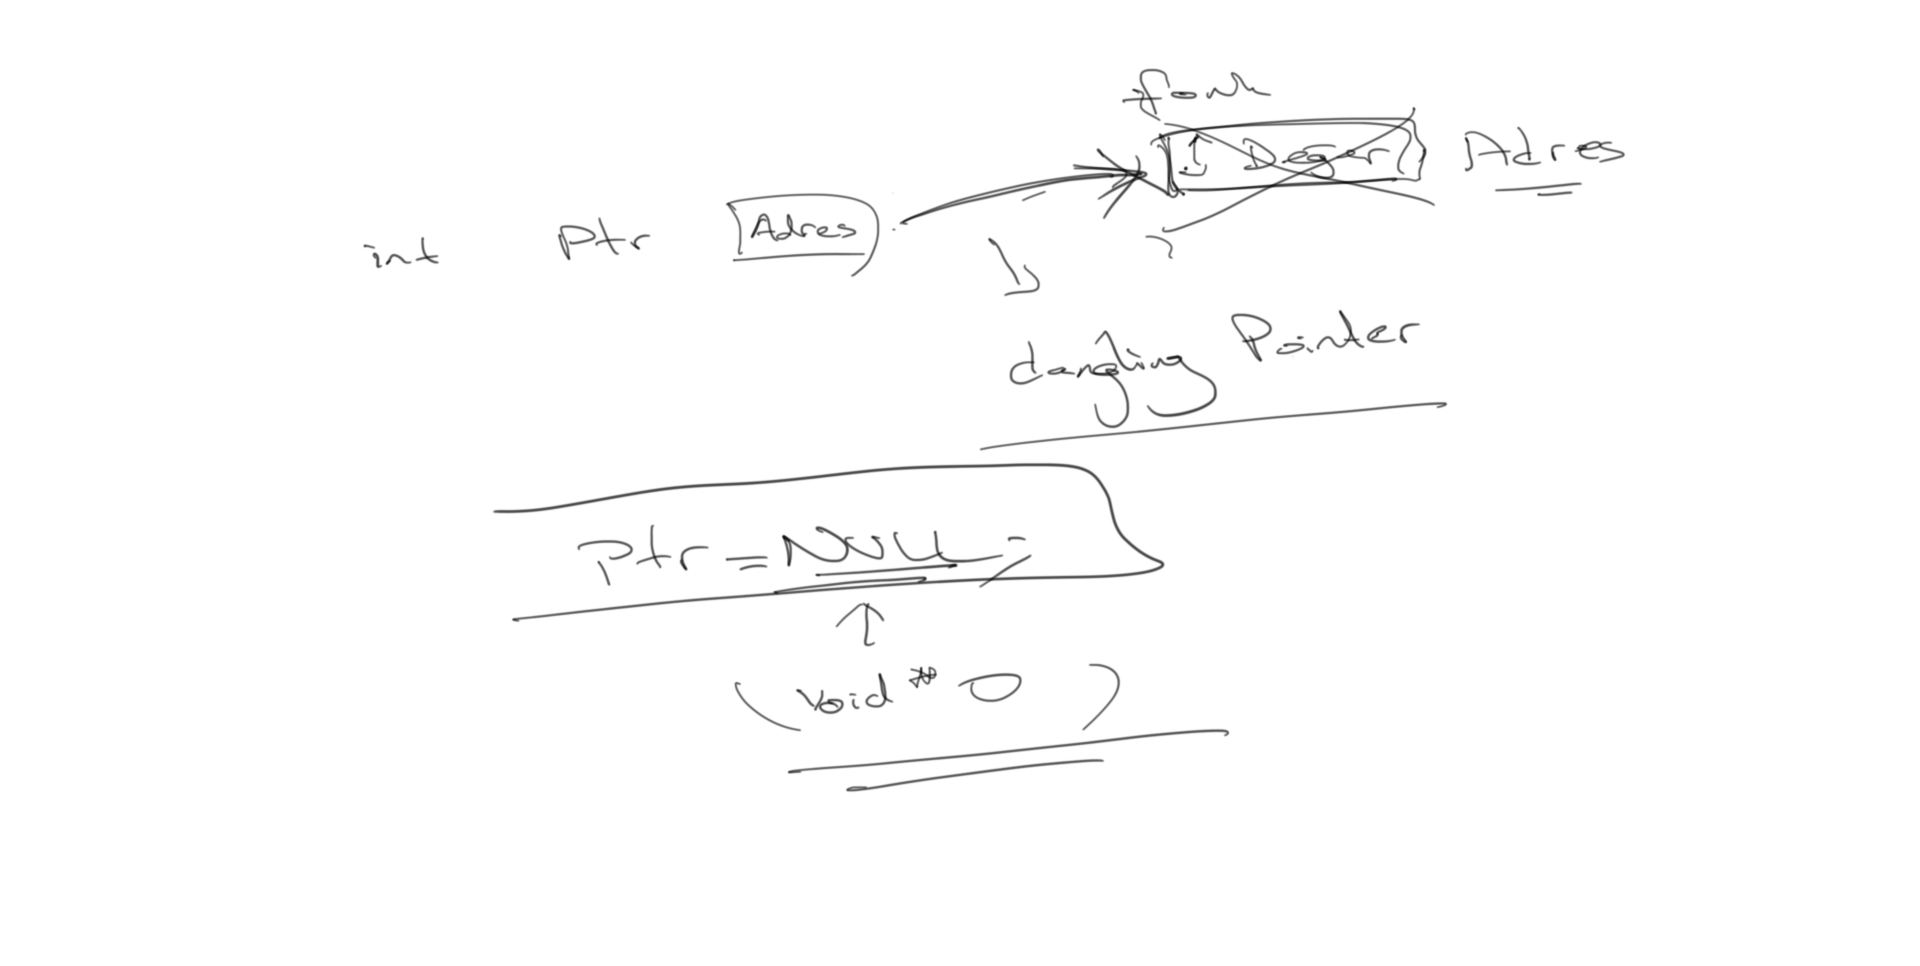 fonk
Değer Adres
int Ptr Adres
dangling Pointer
Ptr = NULL;
(void * 0)